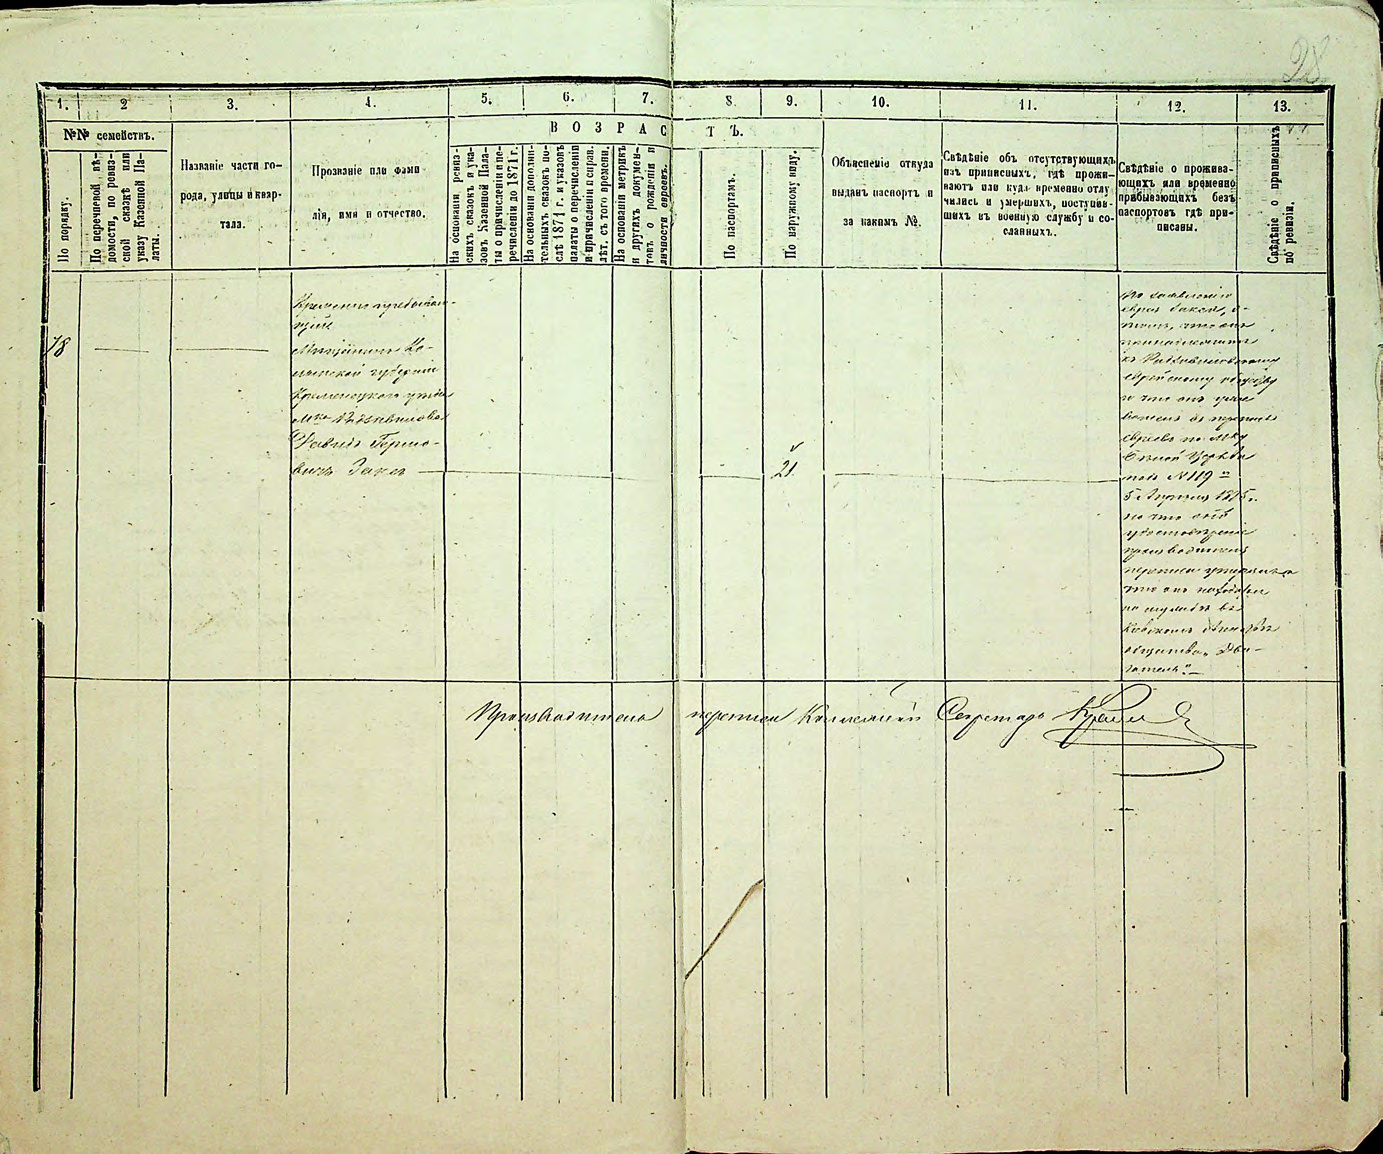 28
1. 2 3. 4. 5. 6. 7. 8. 9. 10. 11. 12. 13.
№№ семействъ.
По порядку.
По перечневой вѣ-
домости, по ревиз-
ской сказкѣ или
указу Казенной Па-
латы.
Названіе части го-
рода, улицы и квар-
тала.
Прозваніе или фами
лія, имя и отчество.
ВОЗРАСТЪ.
На основаніи ревиз-
скихъ сказокъ и ука-
зовъ Казенной Пала-
ты о причисленіи и пе-
речисленіи до 1871 г.
На основаніи дополни-
тельныхъ сказокъ по-
слѣ 1871 г. и указовъ
палаты о перечисленіи
и причисленіи и справ.
лѣт. съ того времени.
На основаніи метрикъ
и другихъ докумен-
товъ о рожденіи и
личности евреевъ.
По паспортамъ.
По наружному виду.
Объясненіе откуда
выданъ паспортъ и
за какимъ №.
Свѣдѣніе объ отсутствующихъ
изъ приписныхъ, гдѣ прожи-
ваютъ или куда временно отлу
чились и умершихъ, поступив-
шихъ въ военную службу и со-
сланныхъ.
Свѣдѣніе о прожива-
ющихъ или временно
прибывающихъ безъ
паспортовъ гдѣ при-
писаны.
Свѣдѣніе о приписныхъ
по ревизіи.
78
Временно пребываю-
щій
Мѣщанинъ Во-
лынской губерніи
Кременецкаго уѣзда
м-ка Радзивилова
Давидъ Гершо-
вичъ Заксъ
21
По заявленію
еврея Закса, о
томъ, что онъ
принадлежитъ
къ Радзивиловскому
еврейскому обществу
и что онъ
евреевъ по м-ку
Бѣлой Церкви
№ 119
5 Апрѣля 1875 г.
но что
производитель
переписи
что онъ находился
на службѣ въ
общества
Производитель переписи Коллежскій Секретарь